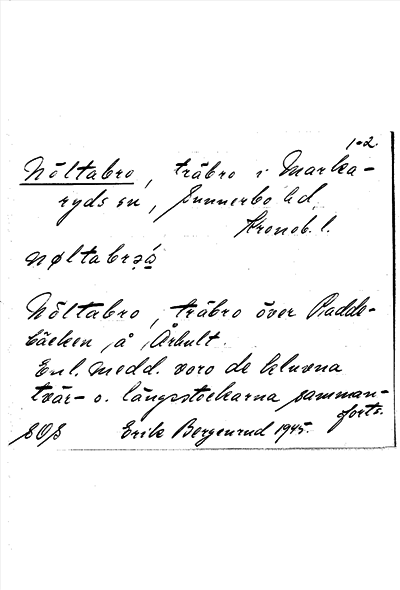 1-2.
Nöltabro, träbro i Marka-
ryds sn, Sunnerbo hd,
Kronob. l.
nøltabrǝ̣ó̤
Nöltabro, träbro över Padde-
bäcken å Århult.
Enl. medd. voro de kluvna
tvär- o. längsstockarna samman-
forts.
SOS Erik Bergenrud 1945.